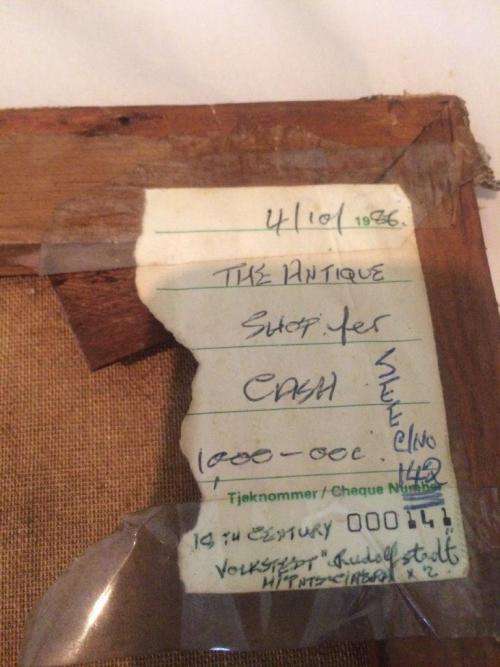 4/10/1986.
THE ANTIQUE
SHOP. for
CASH
1000-00c.
SEE C/NO 142
Tjeknommer / Cheque Number
000141
18 TH CENTURY
VOLKSTEDT" Rudolfstedt"
x 2